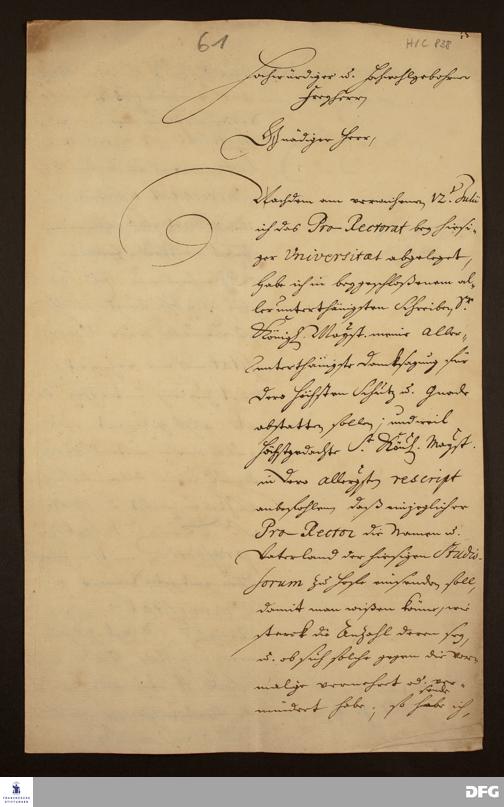 61
H/C 838
Hochwürdiger u. Hochwohlgebohrner
Freyherr,
Gnädiger Herr,
Nachdem am verwichenen 12. Julii
ich das Pro-Rectorat bey hiesi-
ger Universitat abgeleget,
habe ich in beygeschloßenem al-
lerunterthänigsten Schreiben Sr.
Königl. Mayst. meine aller-
unterthänigste Dancksagung für
Dero höchsten Schutz u. Gnade
abstatten sollen; und weil
höchstgedachte Sr. Königl. Mayst.
in Dero allergsten rescript
anbefohlen, daß ein jeglicher
Pro-Rector die Namen u.
Vaterland der hiesigen Studio-
sorum zu Hofe einsenden soll,
damit man wißen könne, wie
starck die Anzahl derer sey,
u. ob sich solche gegen die vor-
malige vermehret od. ver-
mindert habe; so sende ich,
FRANCKESCHE
STIFTUNGEN
DFG